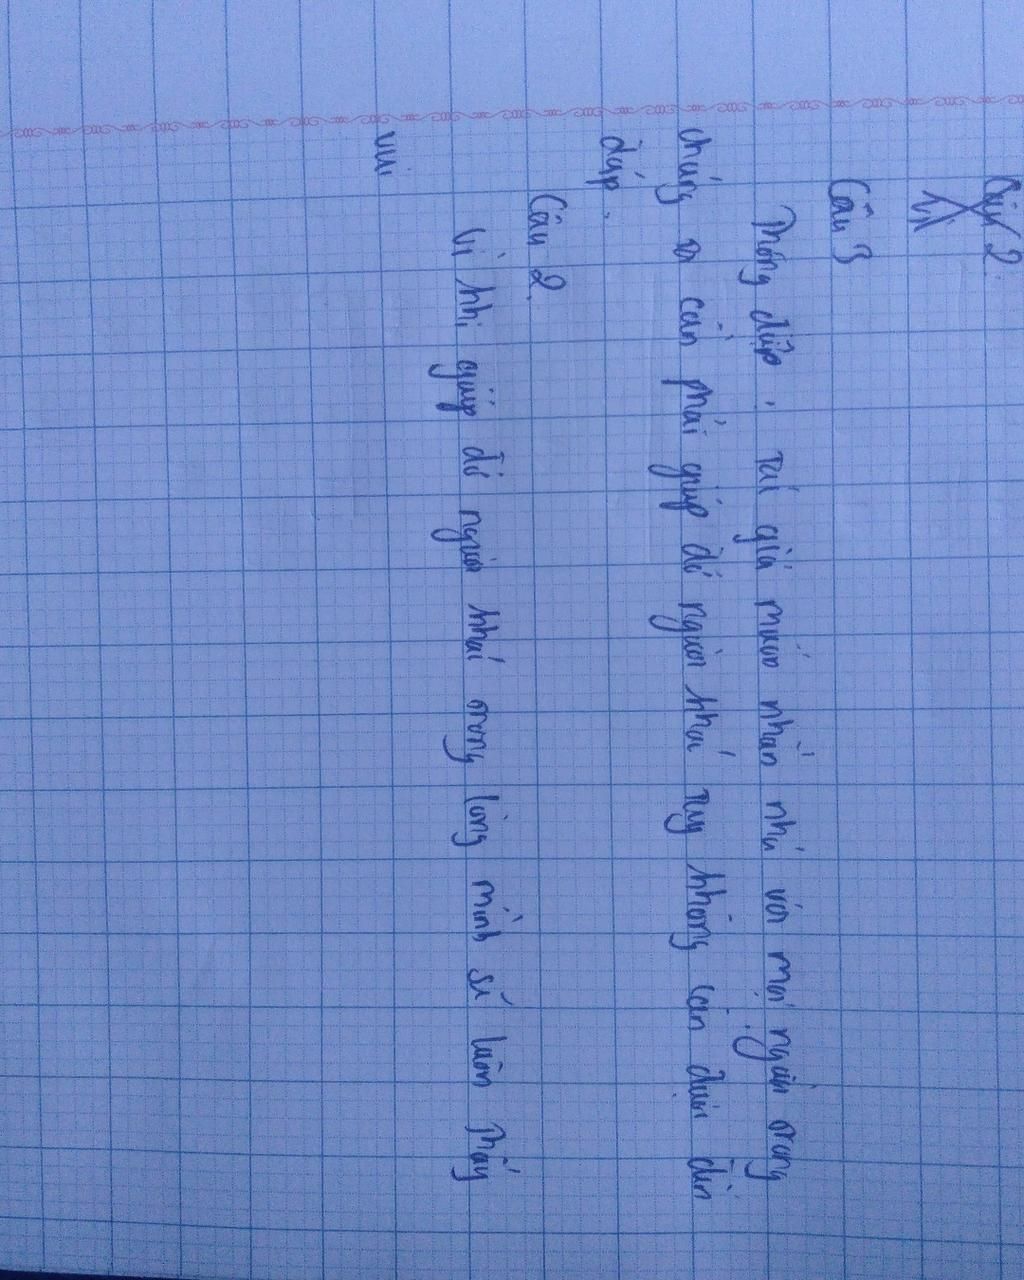 Câu 2
Câu 3
Thông điệp: tác giả muốn nhắn nhủ với mọi người trong
chúng ta cần phải giúp đỡ người khác tuy không cần được đền
đáp.
Câu 2
Vì khi giúp đỡ người khác trong lòng mình sẽ luôn thấy
vui